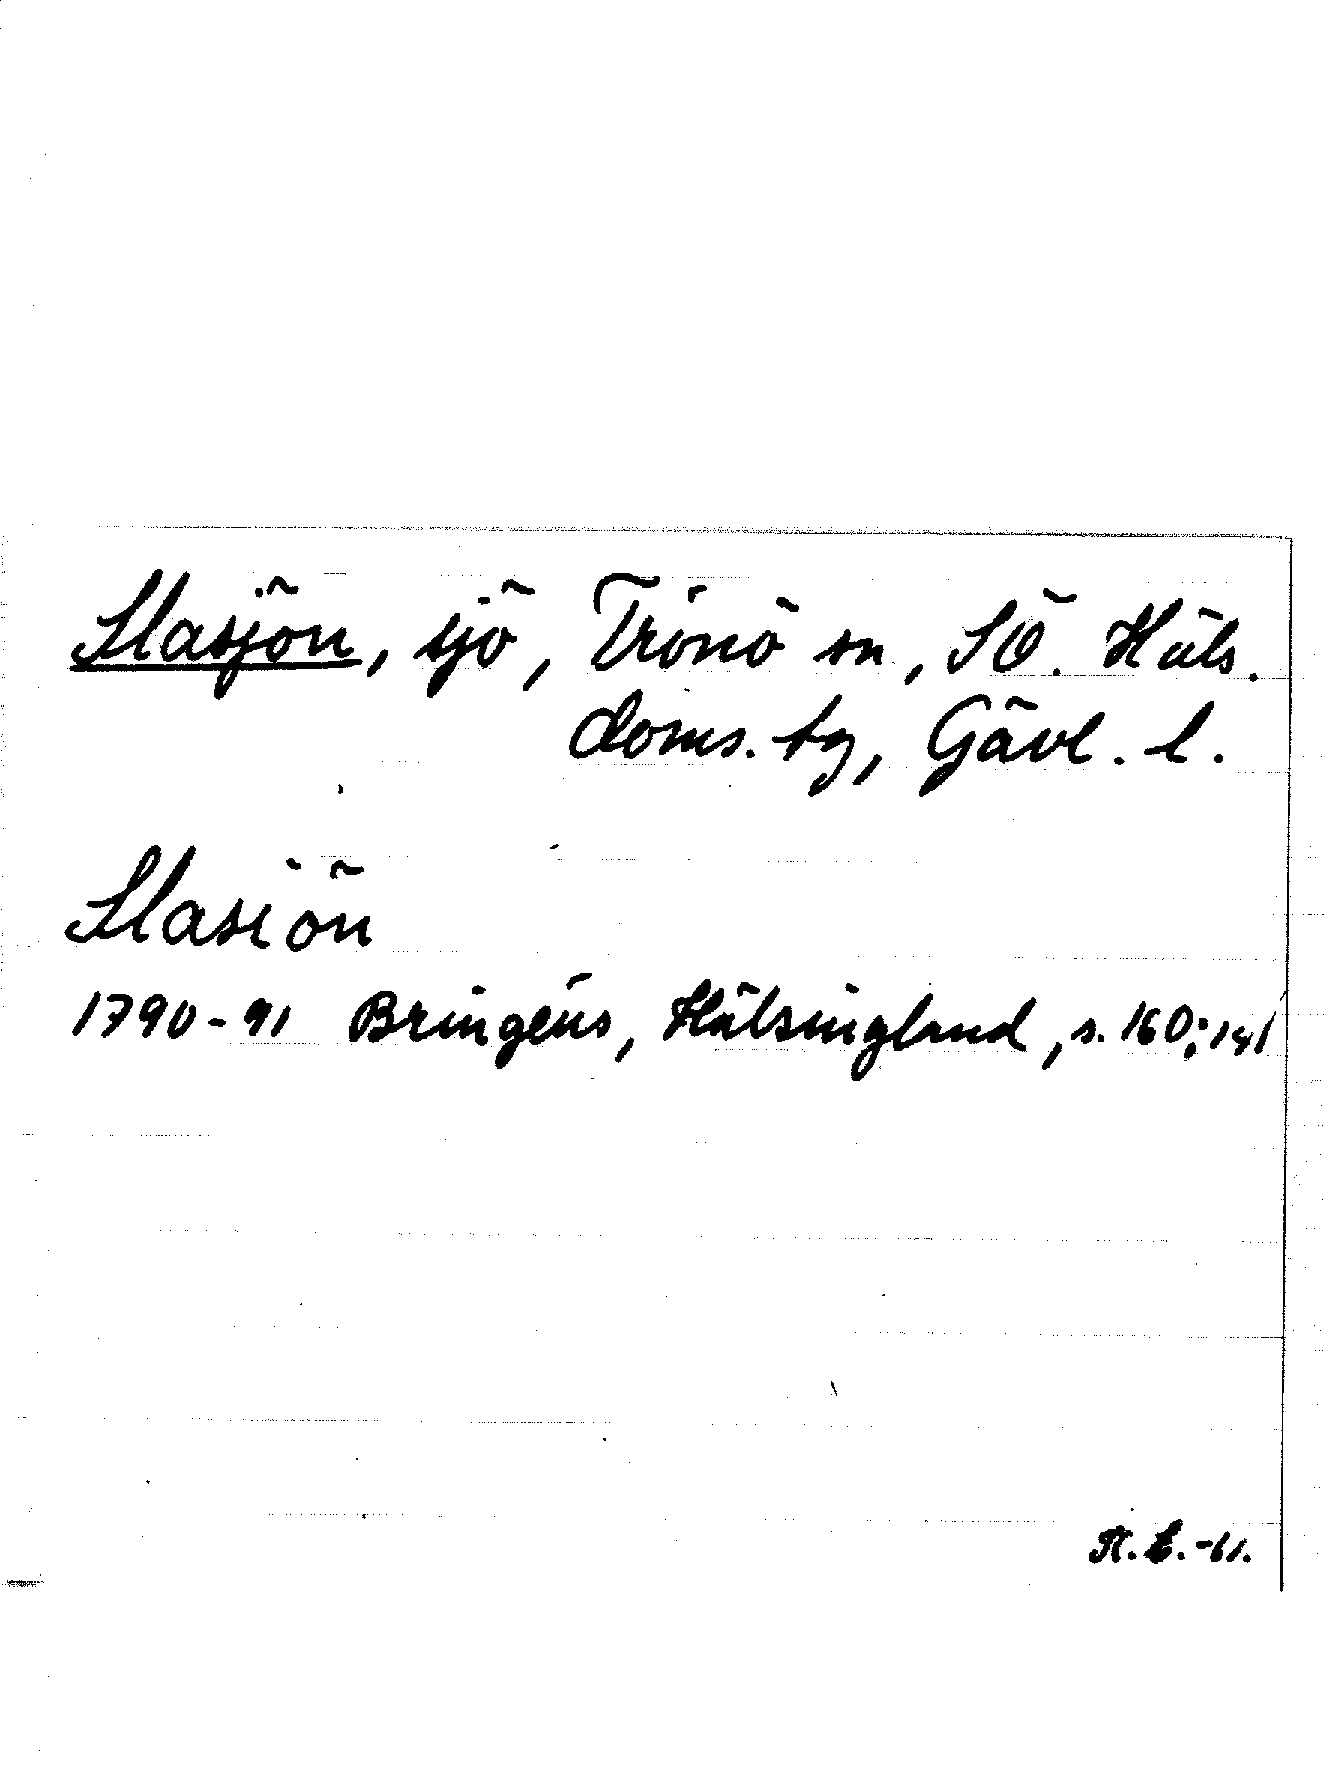 Slasjön, sjö, Trönö sn, SÖ. Häls.
doms. tg, Gävl. l.
Slasiön
1790-91 Bringéus, Hälsingland, s. 160; 141
-61.